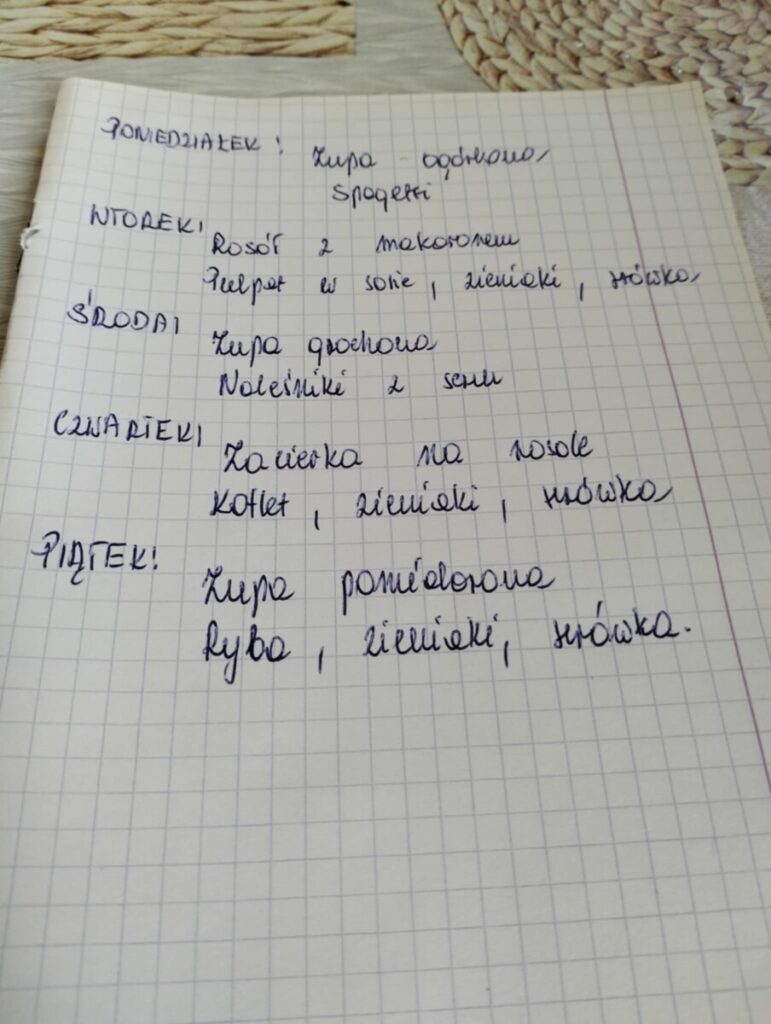 PONIEDZIAŁEK: Zupa ogórkowa
Spagetti
WTOREK:
Rosół z makaronem
Pulpet w sosie, ziemiaki, surówka
ŚRODA:
Zupa grochowa
Naleśniki z serem
CZWARTEK:
Zacierka na rosole
Kotlet, ziemiaki, surówka
PIĄTEK:
Zupa pomidorowa
Ryba, ziemiaki, surówka.